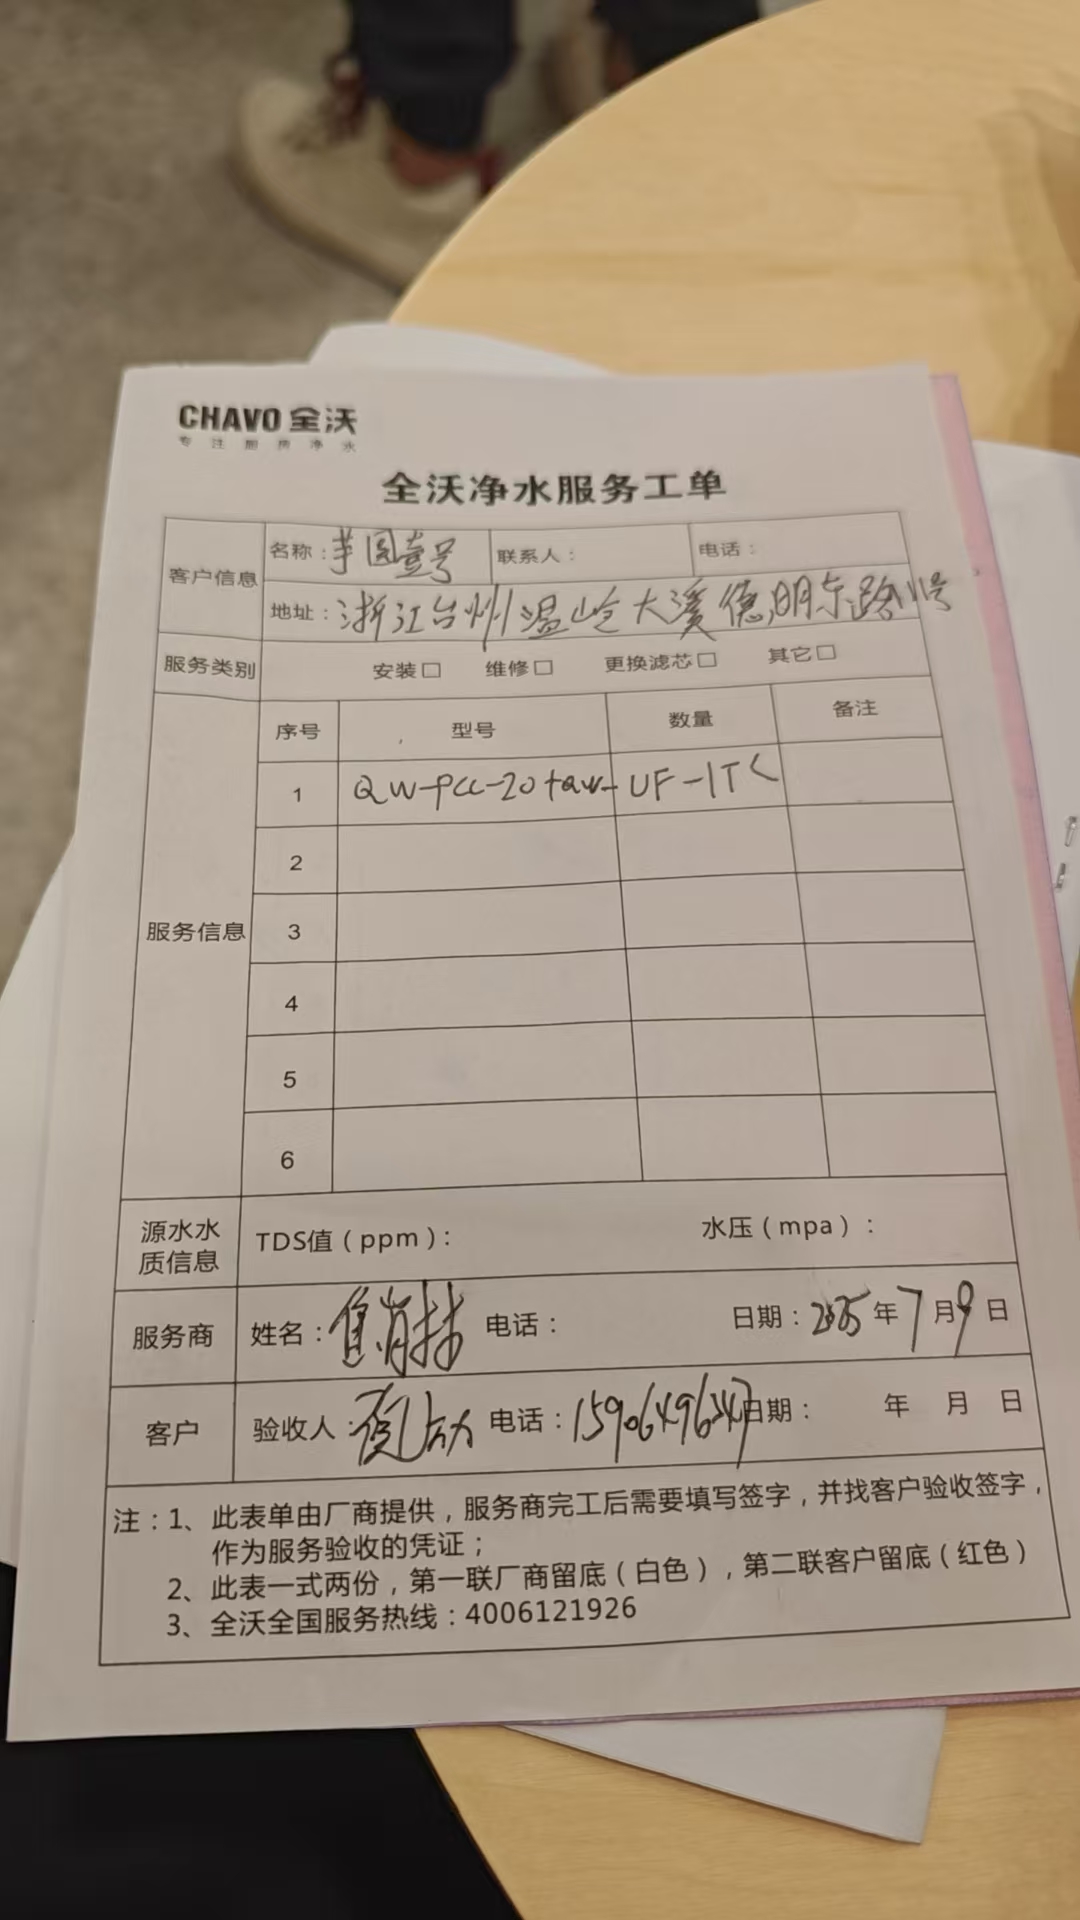 CHAVO 全沃
专注厨房净水
全沃净水服务工单
客户信息
名称：芋圆壹号 联系人： 电话：
地址：浙江台州温岭大溪德明东路11号
服务类别 安装□ 维修□ 更换滤芯□ 其它□
服务信息
序号 型号 数量 备注
1 QW-PCC-20+QW-UF-1T
2
3
4
5
6
源水水质信息 TDS值（ppm）： 水压（mpa）：
服务商 姓名： 电话： 日期：2025年7月9日
客户 验收人： 电话： 日期： 年 月 日
注：1、此表单由厂商提供，服务商完工后需要填写签字，并找客户验收签字，
作为服务验收的凭证；
2、此表一式两份，第一联厂商留底（白色），第二联客户留底（红色）
3、全沃全国服务热线：4006121926